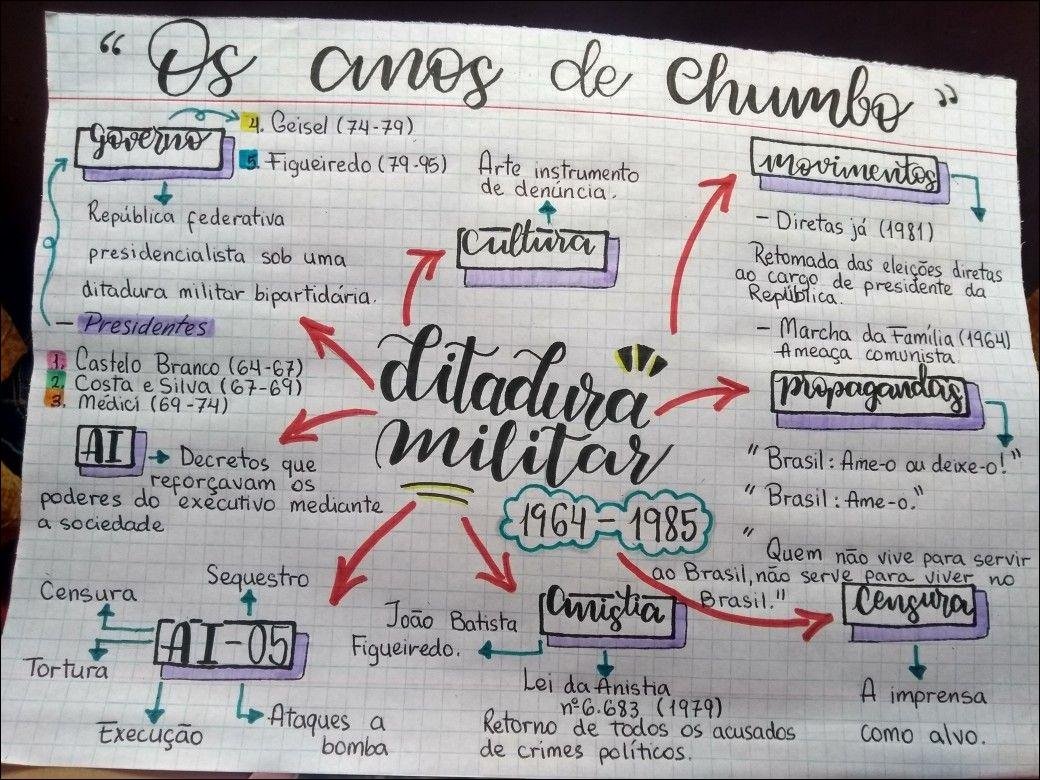 “Os anos de chumbo”
Governo
4. Geisel (74-79)
5. Figueiredo (79-95)
República federativa
presidencialista sob uma
ditadura militar bipartidária.
- Presidentes
1. Castelo Branco (64-67)
2. Costa e Silva (67-69)
3. Médici (69-74)
Arte instrumento
de denúncia.
Cultura
Movimentos
- Diretas já (1981)
Retomada das eleições diretas
ao cargo de presidente da
República.
- Marcha da Família (1964)
Ameaça comunista.
ditadura
militar
1964 = 1985
Propagandas
"Brasil: Ame-o ou deixe-o!"
"Brasil: Ame-o."
"Quem não vive para servir
ao Brasil, não serve para viver no
Brasil."
AI
Decretos que
reforçavam os
poderes do executivo mediante
a sociedade
Censura
Sequestro
AI-05
Tortura
Execução
Ataques a
bomba
Anistia
João Batista
Figueiredo.
Lei da Anistia
nº 6.683 (1979)
Retorno de todos os acusados
de crimes políticos.
Censura
A imprensa
como alvo.